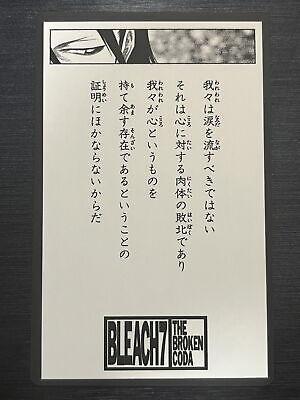 我々は涙を流すべきではない
それは心に対する肉体の敗北であり
我々が心というものを
持て余す存在であるということの
証明にほかならないからだ
BLEACH7
THE
BROKEN
CODA